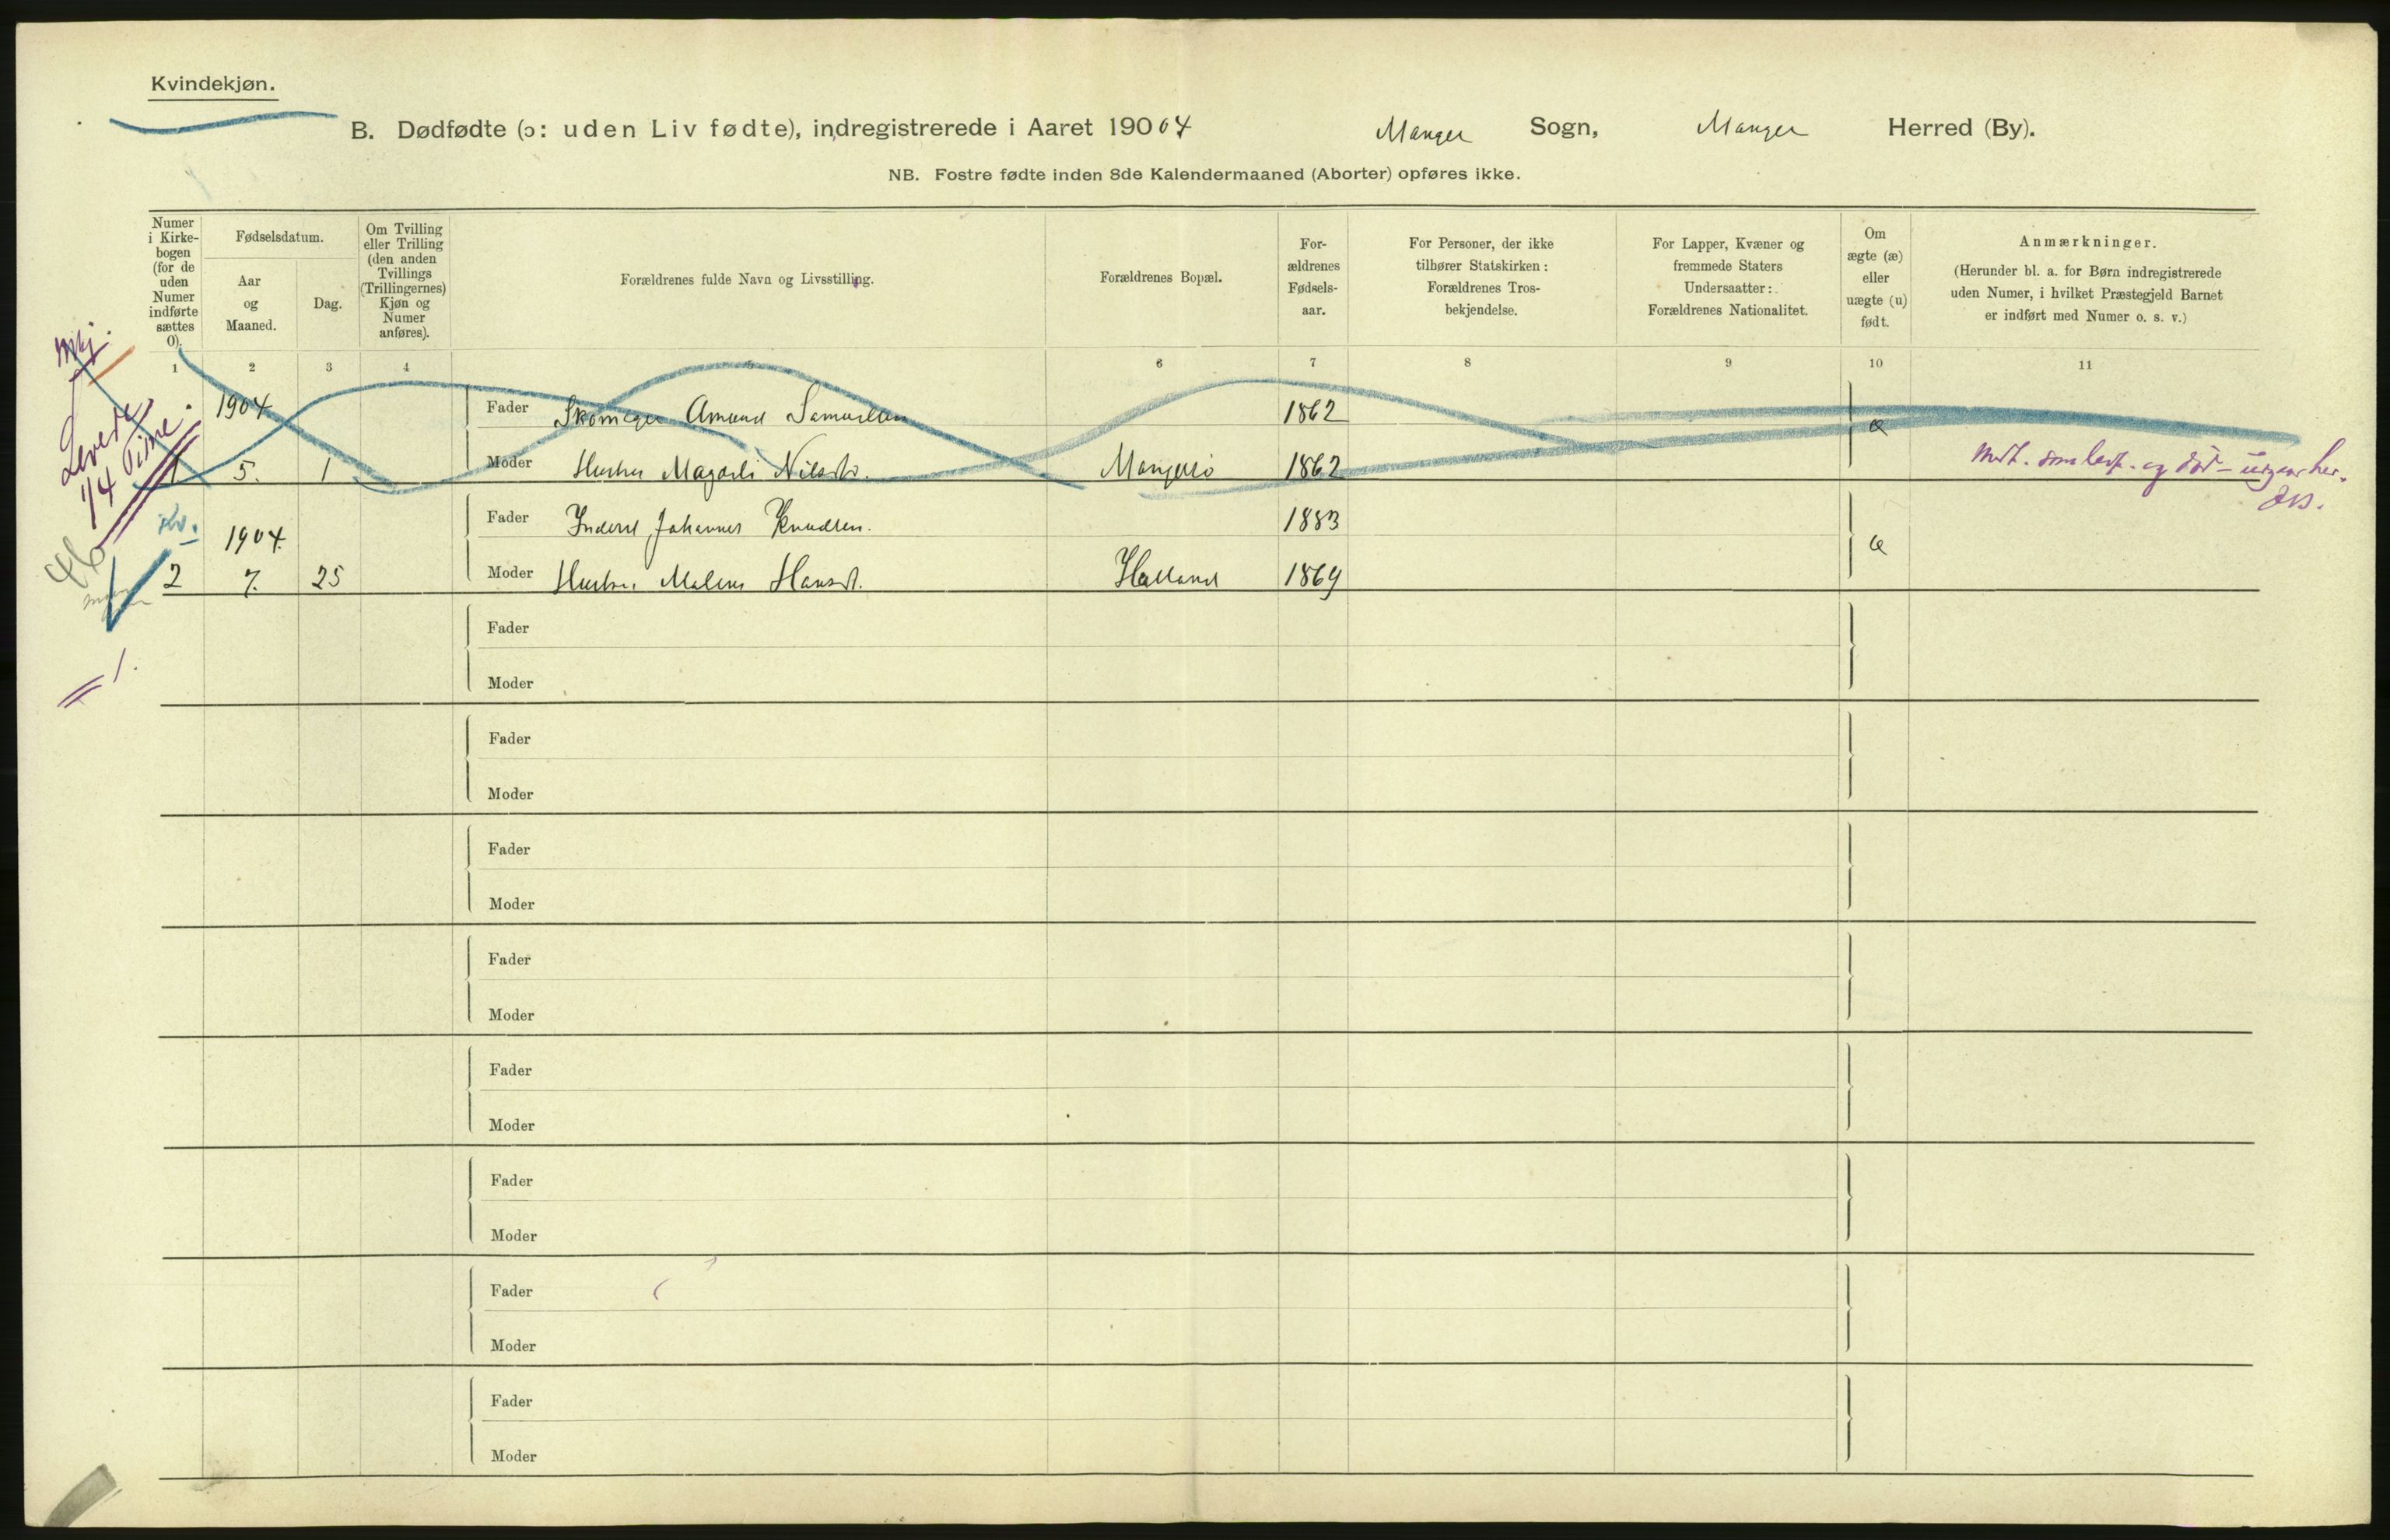 Kvindekjøn.
B. Dødfødte (ɔ: uden Liv fødte), indregistrerede i Aaret 19004 Manger Sogn, Manger Herred (By).
NB. Fostre fødte inden 8de Kalendermaaned (Aborter) opføres ikke.
Numer i Kirke-bogen (for de uden Numer indførte sættes 0).
Fødselsdatum.
Aar og Maaned.
Dag.
Om Tvilling eller Trilling (den anden Tvillings (Trillingernes) Kjøn og Numer anføres).
Forældrenes fulde Navn og Livsstilling.
Forældrenes Bopæl.
For-ældrenes Fødsels-aar.
For Personer, der ikke tilhører Statskirken: Forældrenes Tros-bekjendelse.
For Lapper, Kvæner og fremmede Staters Undersaatter: Forældrenes Nationalitet.
Om ægte (æ) eller uægte (u) født.
Anmærkninger.
(Herunder bl. a. for Børn indregistrerede uden Numer, i hvilket Præstegjeld Barnet er indført med Numer o. s. v.)
1 2 3 4 5 6 7 8 9 10 11
Mkj.
Levede 1/4 Time.
1904 Fader Amund Samuelsen 1862 æ
1 5. 1 Moder Nilsdr. 1862
Kv.
1904. Fader Johannes Knudsen. 1883 æ
2 7. 25 Moder Malene Hansd. Halland 1869
= 1.
Fader
Moder
Fader
Moder
Fader
Moder
Fader
Moder
Fader
Moder
Fader
Moder
Fader
Moder
Fader
Moder